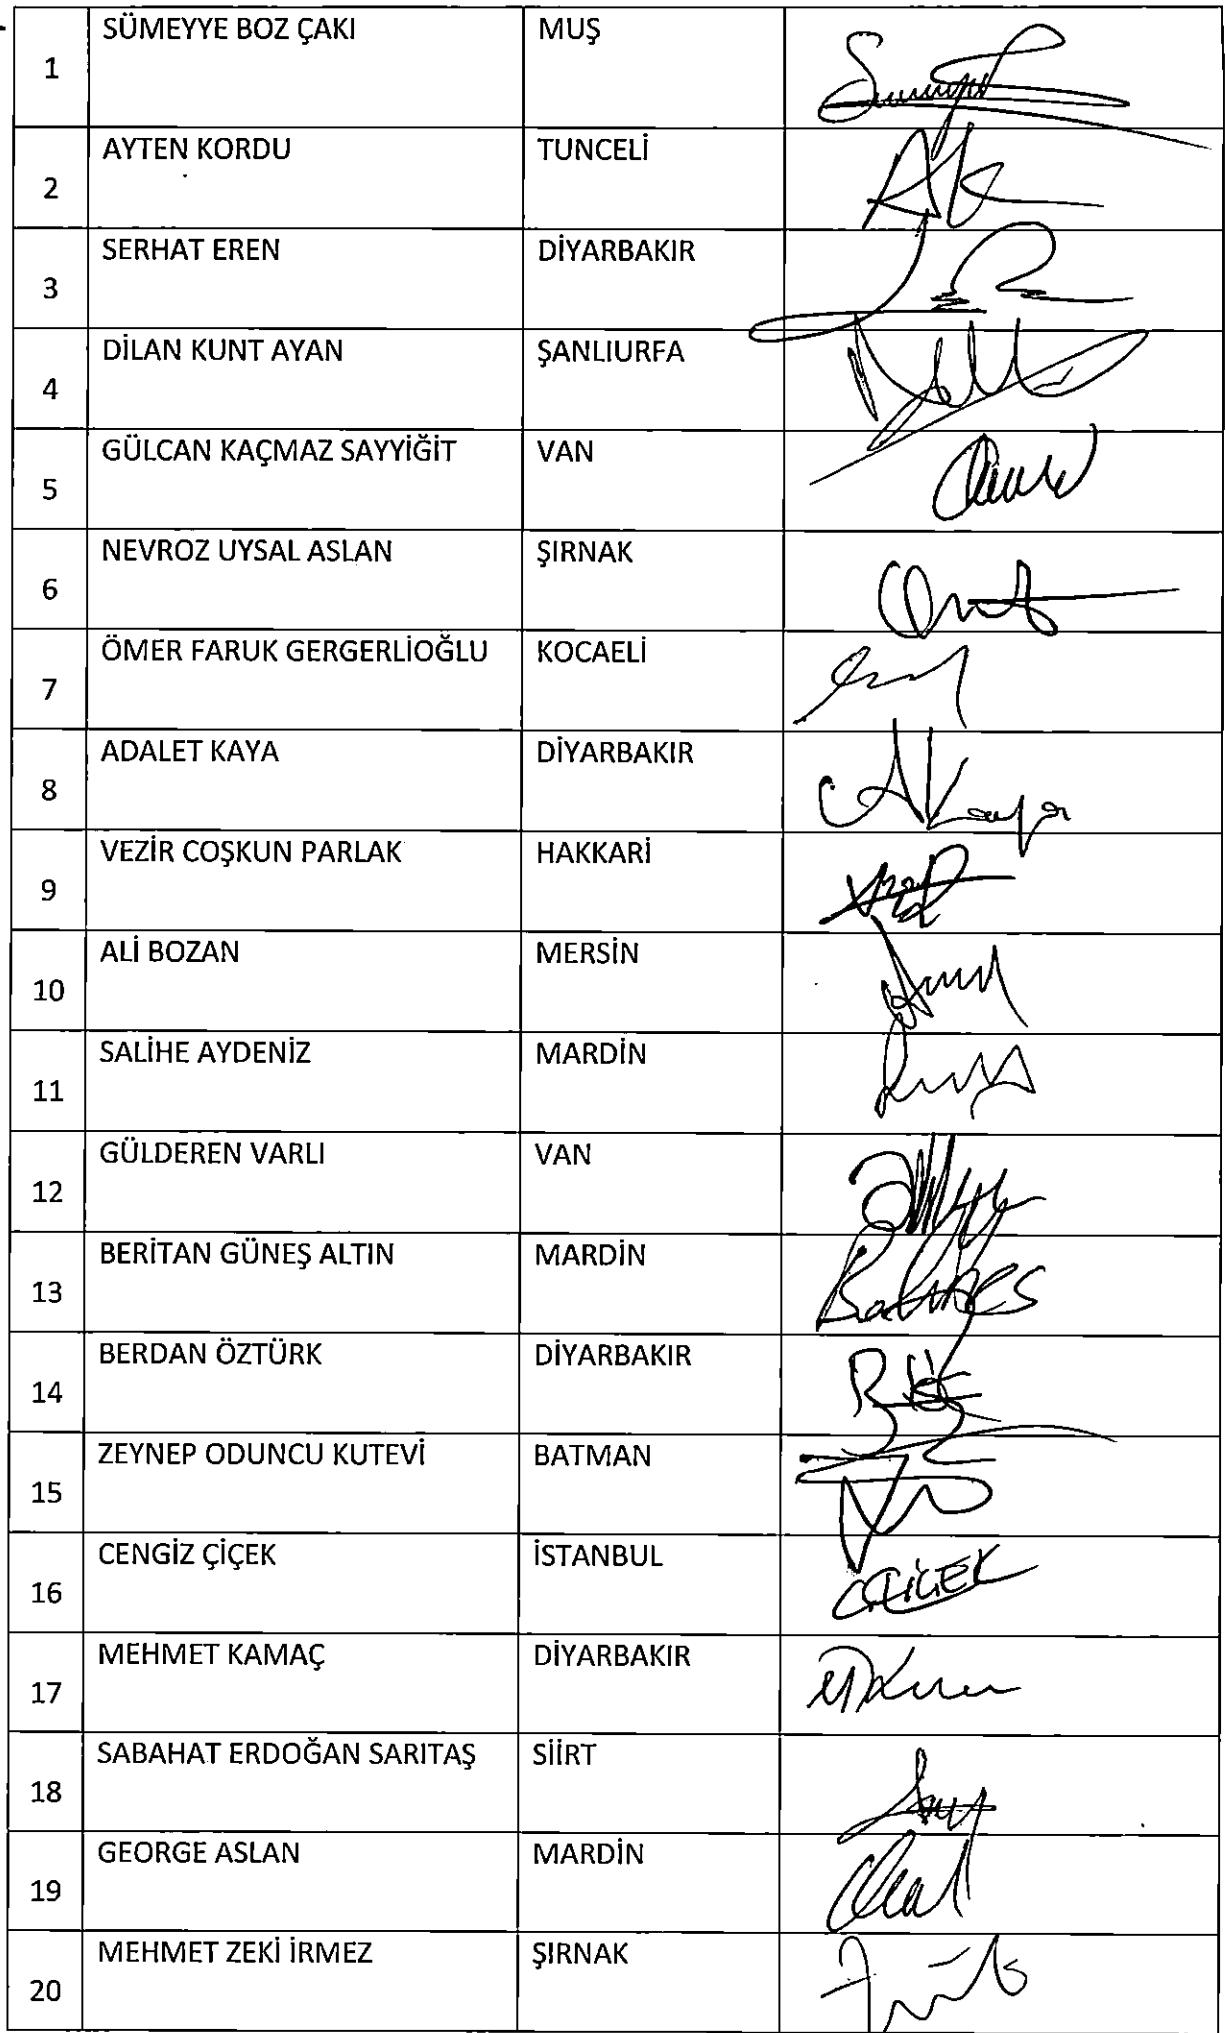 1 SÜMEYYE BOZ ÇAKI MUŞ
2 AYTEN KORDU TUNCELİ
3 SERHAT EREN DİYARBAKIR
4 DİLAN KUNT AYAN ŞANLIURFA
5 GÜLCAN KAÇMAZ SAYYİĞİT VAN
6 NEVROZ UYSAL ASLAN ŞIRNAK
7 ÖMER FARUK GERGERLİOĞLU KOCAELİ
8 ADALET KAYA DİYARBAKIR AKaya
9 VEZİR COŞKUN PARLAK HAKKARİ
10 ALİ BOZAN MERSİN
11 SALİHE AYDENİZ MARDİN
12 GÜLDEREN VARLI VAN
13 BERİTAN GÜNEŞ ALTIN MARDİN
14 BERDAN ÖZTÜRK DİYARBAKIR
15 ZEYNEP ODUNCU KUTEVİ BATMAN
16 CENGİZ ÇİÇEK İSTANBUL C.ÇİÇEK
17 MEHMET KAMAÇ DİYARBAKIR
18 SABAHAT ERDOĞAN SARITAŞ SİİRT
19 GEORGE ASLAN MARDİN
20 MEHMET ZEKİ İRMEZ ŞIRNAK